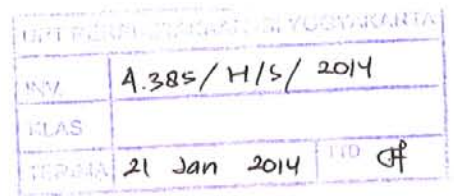 UPT PERPUSTAKAAN ISI YOGYAKARTA
INV. A.385/H/S/ 2014
KLAS
TERIMA 21 Jan 2014 TTD